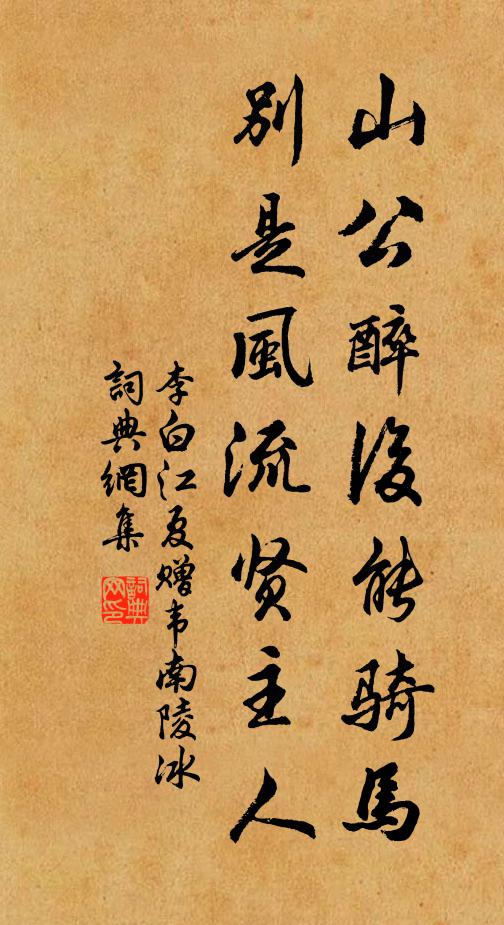 山公醉後能騎馬
別是風流贤主人
李白江夏赠韦南陵冰
詞典網集
詞典网印